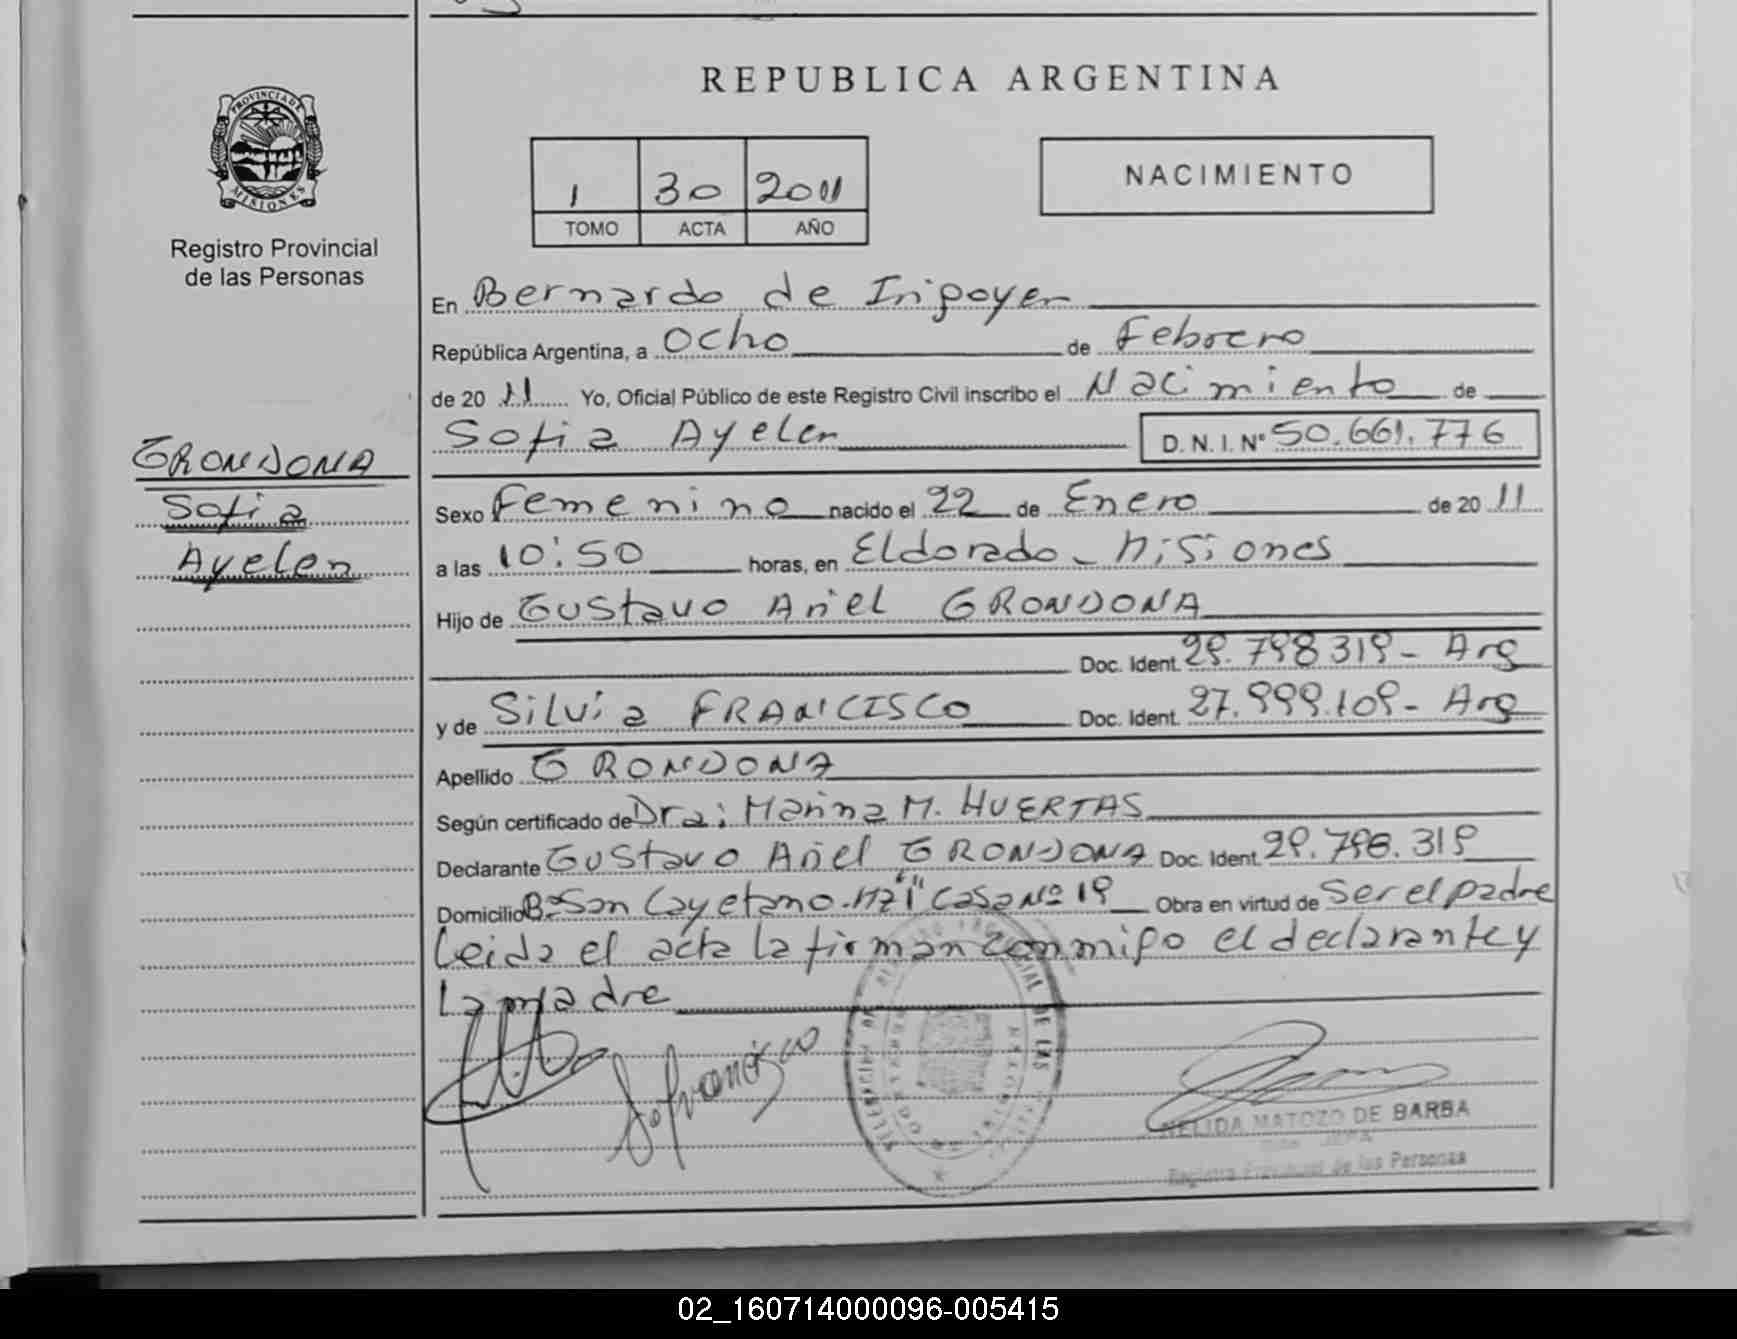 REPUBLICA ARGENTINA
PROVINCIA DE
MISIONES
Registro Provincial
de las Personas
1 30 2011
TOMO ACTA AÑO
NACIMIENTO
En Bernardo de Irigoyen
República Argentina, a Ocho de Febrero
de 20 11 Yo, Oficial Público de este Registro Civil inscribo el Nacimiento de
Sofia Ayelen D. N. I. Nº 50.661.776
GRONDONA
Sofia
Ayelen
Sexo Femenino nacido el 22 de Enero de 20 11
a las 10:50 horas, en Eldorado - Misiones
Hijo de Gustavo Ariel GRONDONA
Doc. Ident. 29.798.319 - Arg
y de Silvia FRANCISCO Doc. Ident. 27.999.109 - Arg
Apellido GRONDONA
Según certificado de Dra: Marina M. HUERTAS
Declarante Gustavo Ariel GRONDONA Doc. Ident. 29.798.319
Domicilio Bº San Cayetano - Mz "I" Casa Nº 19 Obra en virtud de Ser el padre
Leida el acta la firman conmigo el declarante y
La madre
Sofrancisco
DE LAS
NELIDA MATOZO DE BARBA
JEFA
Registro Provincial de las Personas
02_160714000096-005415